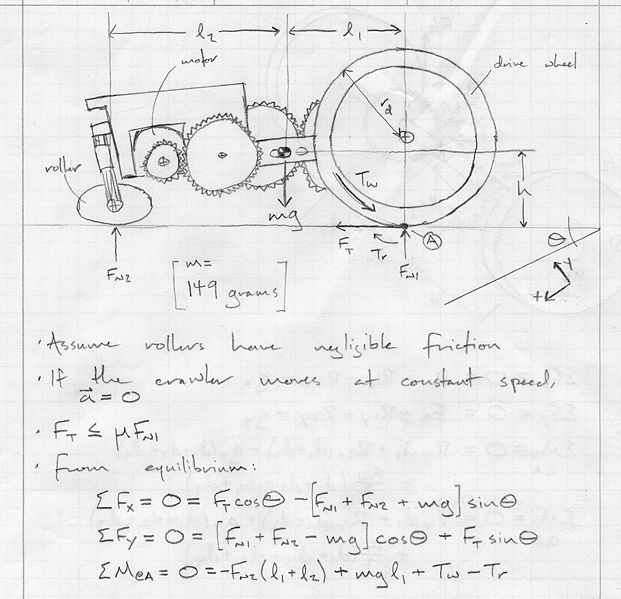 l₂
l₁
motor
drive wheel
r_d
roller
T_w
h
mg
F_T
T_r
A
θ
F_N2
F_N1
y
x
[m =
149 grams]
· Assume rollers have negligible friction
· If the crawler moves at constant speed,
a⃗ = 0
· F_T ≤ μF_N1
· From equilibrium:
ΣF_x = 0 = F_T cosθ - [F_N1 + F_N2 + mg] sinθ
ΣF_y = 0 = [F_N1 + F_N2 - mg] cosθ + F_T sinθ
ΣM_@A = 0 = -F_N2(l₁ + l₂) + mgl₁ + T_w - T_r